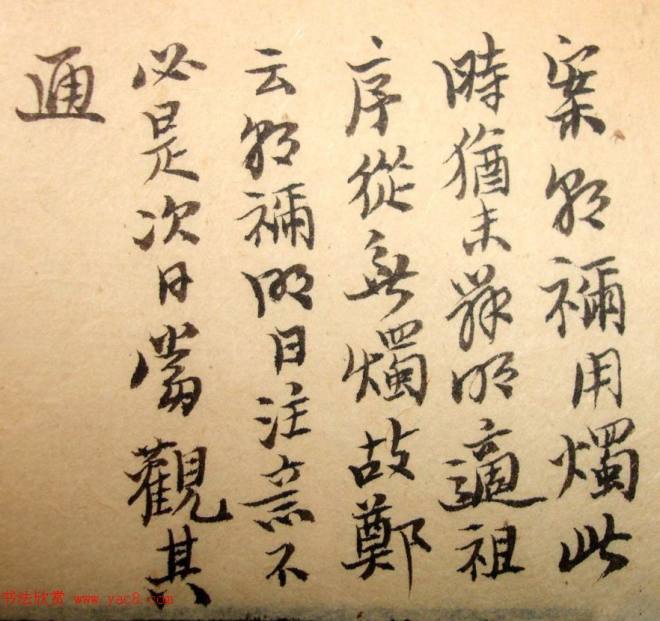 案朝禰用燭此
時猶未辨明適祖
序從無燭故鄭
云朝禰明日注意不
必是次日當觀其
通
书法欣赏 www.yac8.com